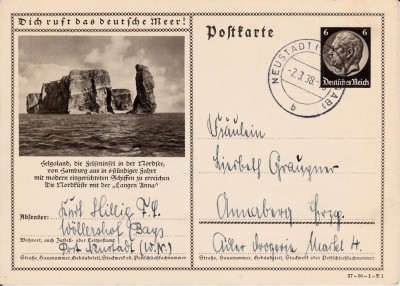 Dich ruft das deutsche Meer!
Postkarte
6 6
Deutsches Reich
NEUSTADT
-2.3.38.
b
Helgoland, die Felseninsel in der Nordsee,
von Hamburg aus in 6stündiger Fahrt
mit modern eingerichteten Schiffen zu erreichen
Die Nordküste mit der „Langen Anna“
Absender:
Kurt Hillig
Wöllershof Bays
Wohnort, auch Zustell- oder Leitpostamt
Post Neustadt (W.N.)
Straße, Hausnummer, Gebäudeteil, Stockwerk od. Postschließfachnummer
Fräulein
Liesbeth Graupner
Annaberg Erzg.
Adler Drogerie Markt 4.
Straße, Hausnummer, Gebäudeteil, Stockwerk oder Postschließfachnummer